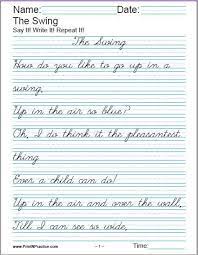 Name: Date:
The Swing
Say It! Write It! Repeat It!
The Swing
How do you like to go up in a
swing,
Up in the air so blue?
Oh, I do think it the pleasantest
thing
Ever a child can do!
Up in the air and over the wall,
Till I can see so wide,
www.PrintNPractice.com ~ 1 ~ Time: